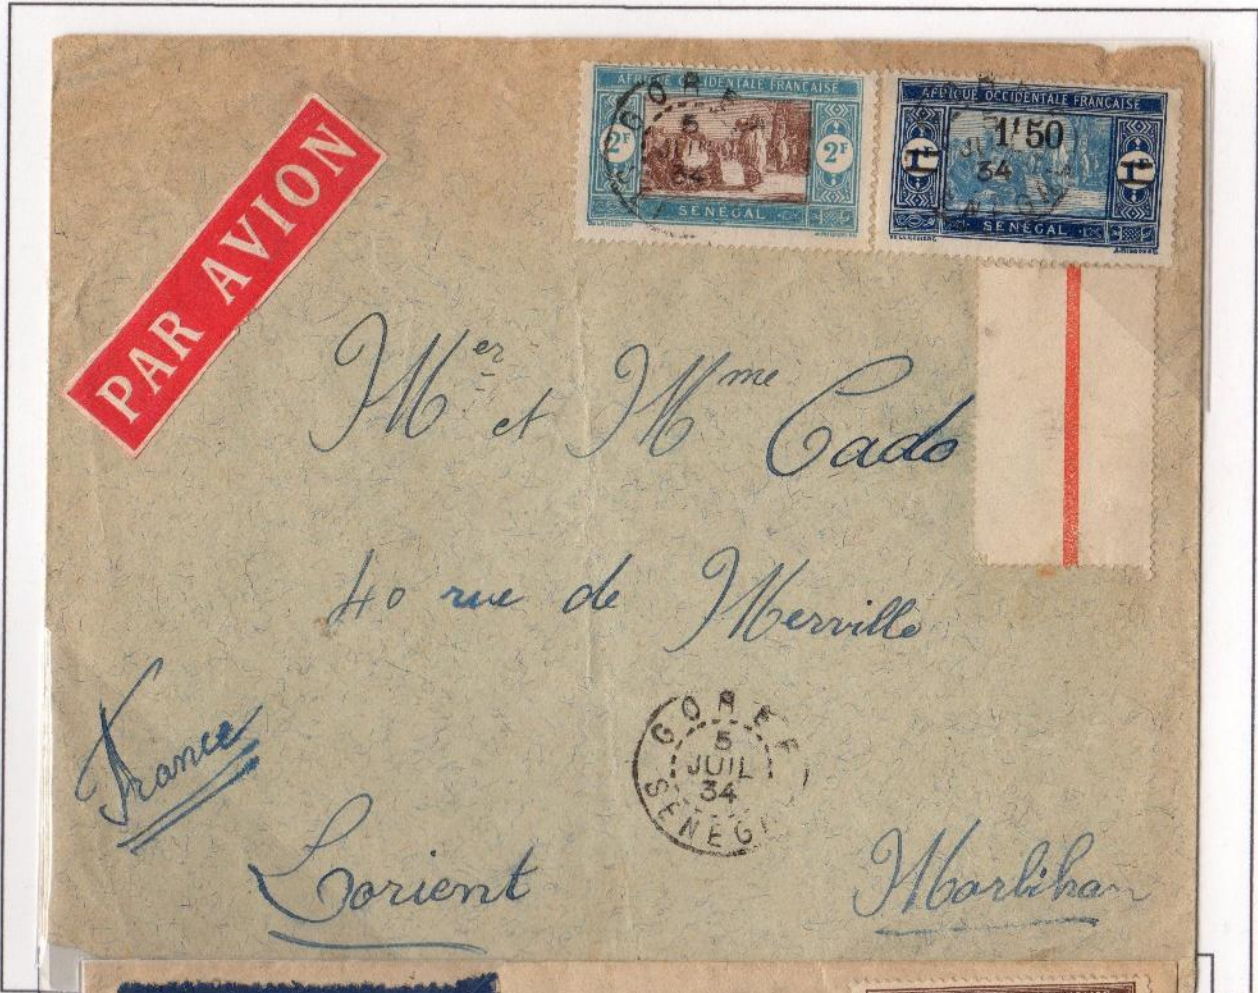 PAR AVION
AFRIQUE OCCIDENTALE FRANÇAISE
2F 2F
SENEGAL
AFRIQUE OCCIDENTALE FRANÇAISE
1F 50
1F 1F
SENEGAL
GOREE
5
JUIL
34
Mer et Mme Cado
40 rue de Merville
GOREE
5
JUIL
34
SENEGAL
France
Lorient Morbihan